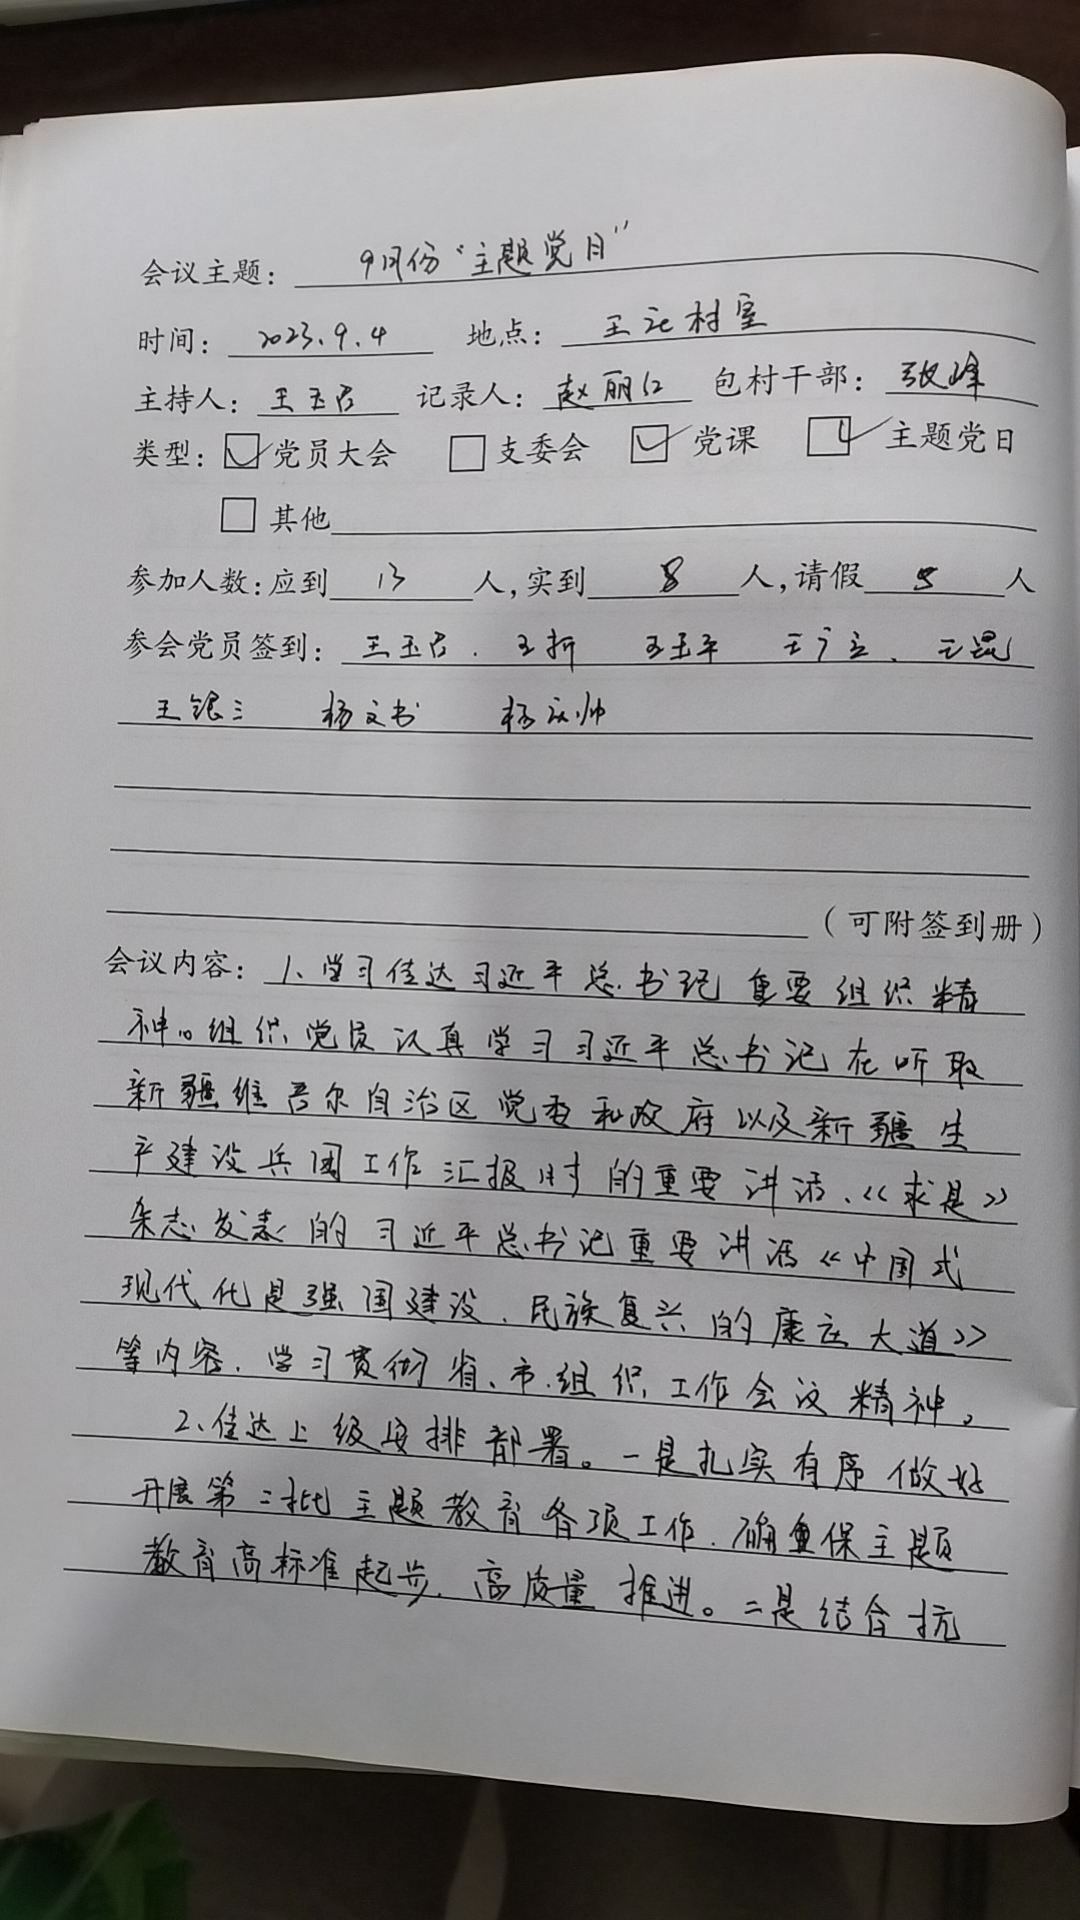 会议主题： 9月份“主题党日”
时间： 2023.9.4 地点： 王 村室
主持人： 王玉占 记录人： 赵丽红 包村干部： 张峰
类型： 党员大会 支委会 党课 主题党日
其他
参加人数：应到 13 人，实到 8 人，请假 5 人
参会党员签到： 王玉占． 王折 王玉平 王广立． 王昆
王银三 杨文书 杨 帅
（可附签到册）
会议内容： 1、学习传达习近平总书记重要组织精
神。组织党员认真学习习近平总书记在听取
新疆维吾尔自治区党委和政府以及新疆生
产建设兵团工作汇报时的重要讲话、《求是》
杂志发表的习近平总书记重要讲话《中国式
现代化是强国建设、民族复兴的康庄大道》
等内容，学习贯彻省、市、组织工作会议精神。
2、传达上级安排部署。一是扎实有序做好
开展第二批主题教育各项工作，确保主题
教育高标准起步，高质量推进。二是结合抗